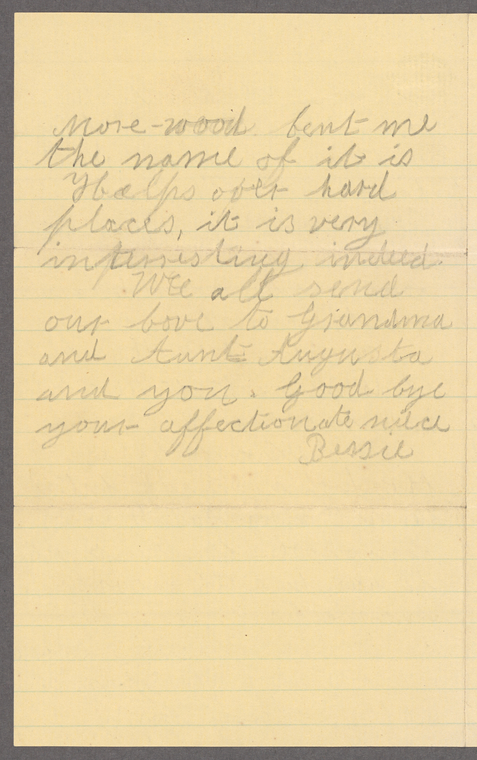 More-wood. bent me
the name of it is
Hælps over hard
places, it is very
interristing indeed.
We all send
our love to Grandma
and Aunt Augusta
and you. Good bye
your affectionate niece
Bessie